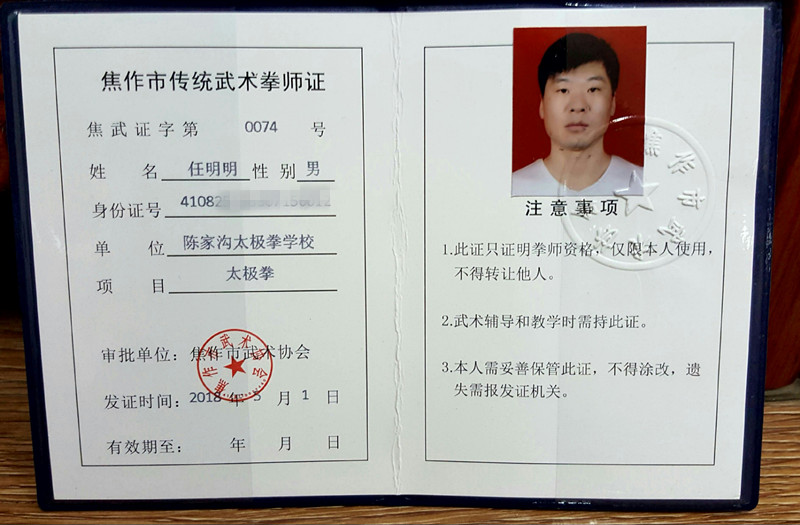 焦作市传统武术拳师证
焦武证字第 0074 号
姓 名 任明明 性别 男
身份证号 4108
单 位 陈家沟太极拳学校
项 目 太极拳
审批单位：焦作市武术协会
发证时间：2018 年 5 月 1 日
有效期至： 年 月 日
注意事项
1.此证只证明拳师资格，仅限本人使用，
不得转让他人。
2.武术辅导和教学时需持此证。
3.本人需妥善保管此证，不得涂改，遗
失需报发证机关。